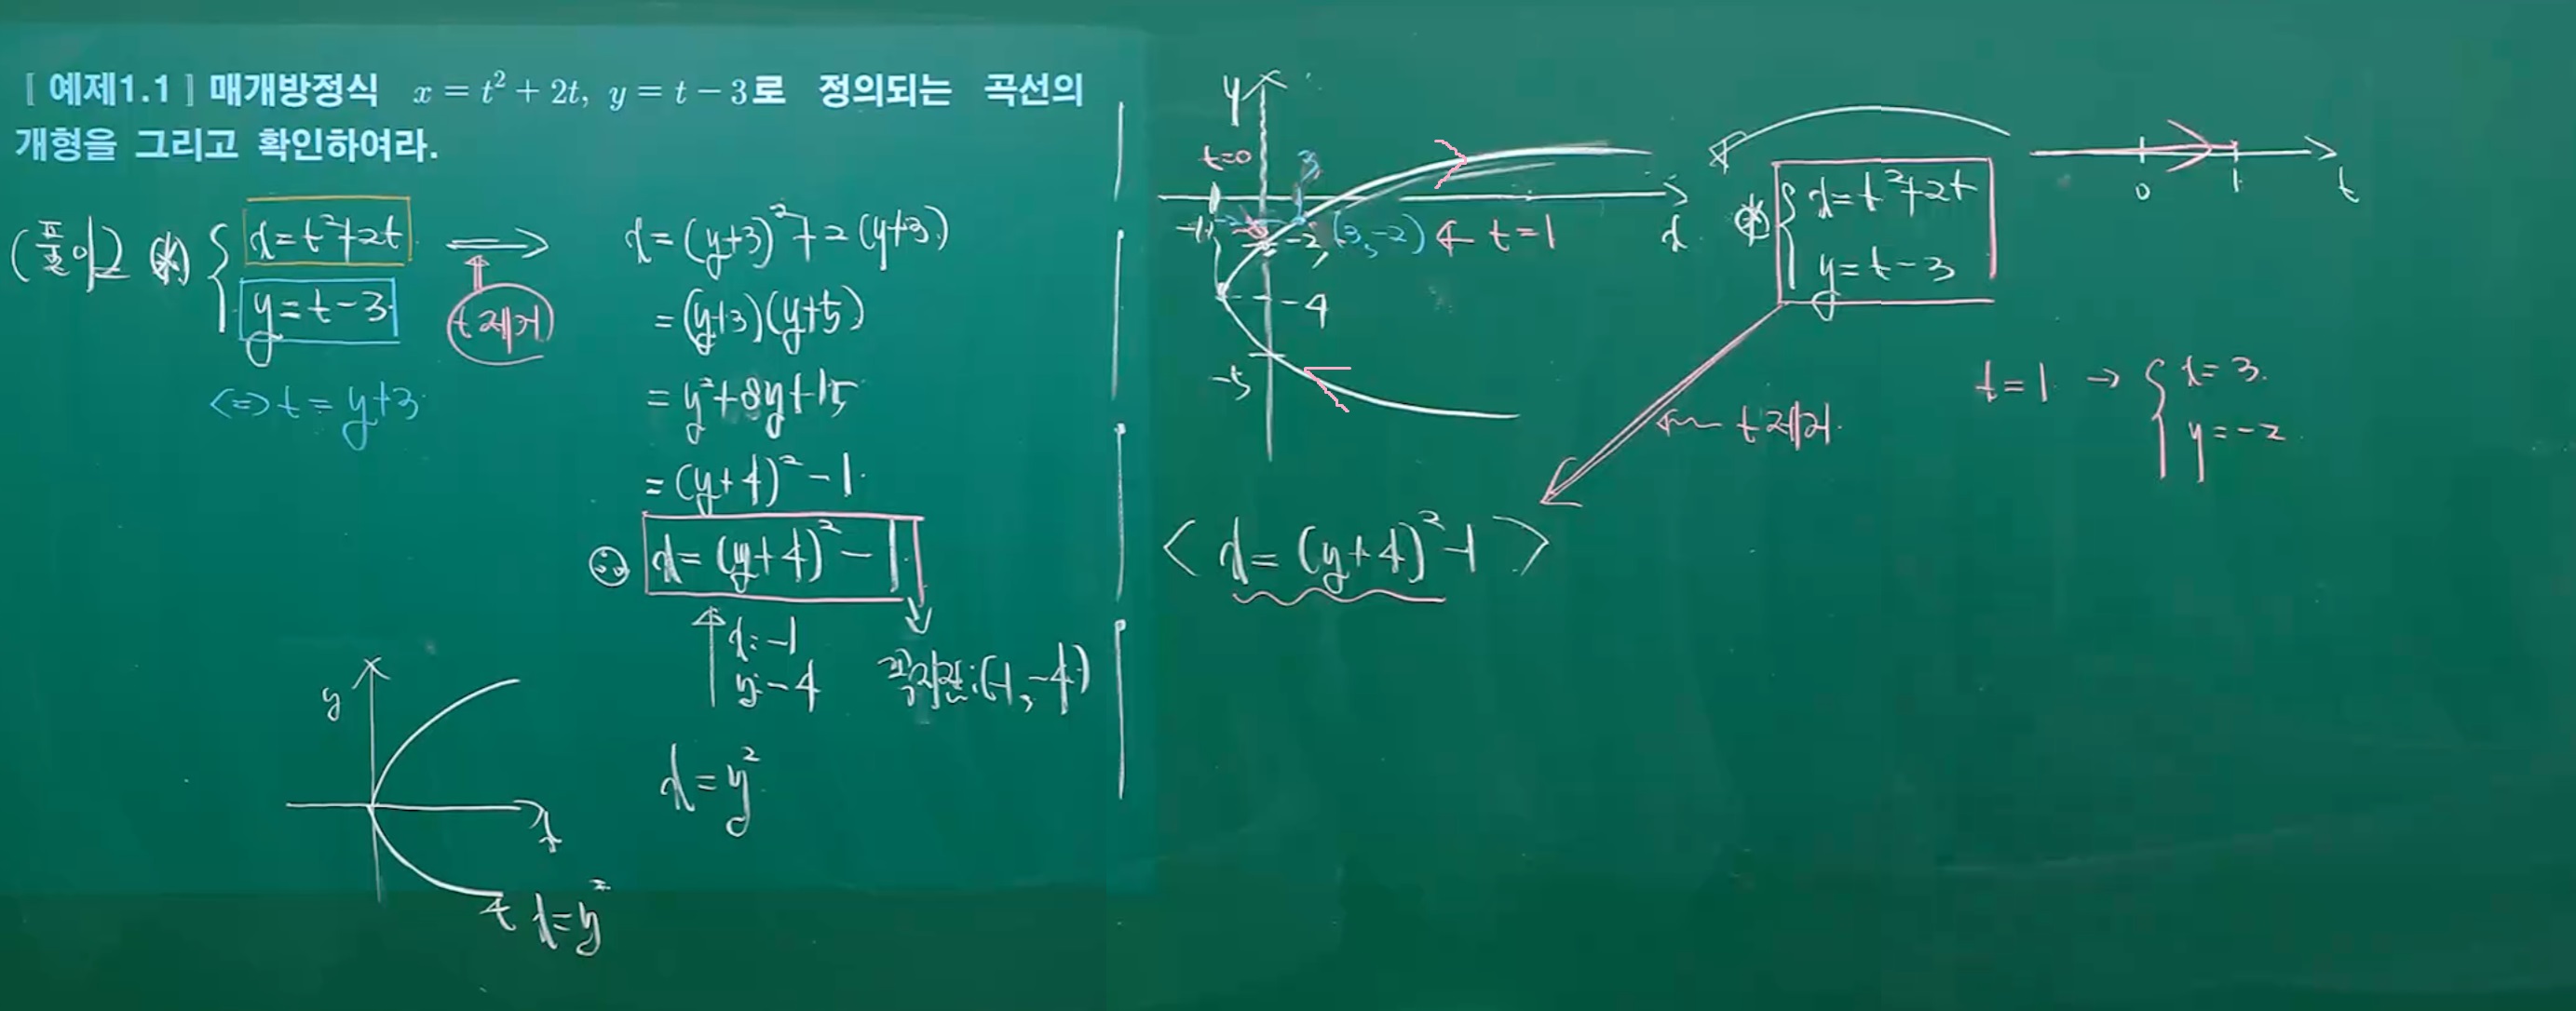 [ 예제1.1 ] 매개방정식 x = t² + 2t, y = t − 3로 정의되는 곡선의
개형을 그리고 확인하여라.
(풀이) (*) { x=t²+2t
y=t-3
⇔ t=y+3
t 제거
x=(y+3)²+2(y+3)
=(y+3)(y+5)
=y²+8y+15
=(y+4)²-1
∴ x=(y+4)²-1
x:-1
y:-4
꼭지점:(-1,-4)
x=y²
y
x
x=y²
y
t=0
3
-1
-2
(3,-2) ← t=1
x
-4
-5
(*) { x=t²+2t
y=t-3
0 1 t
t=1 → { x=3
y=-2
← t 제거
< x=(y+4)²-1 >